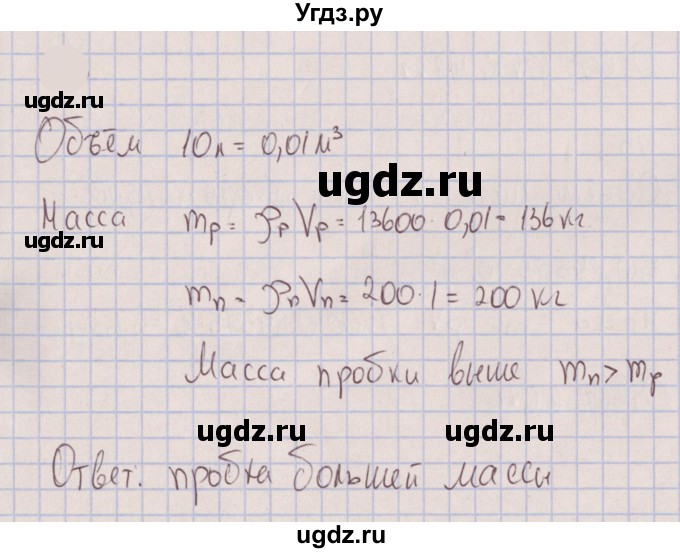 Угдз.ру
ugdz.ru
Объём 10л = 0,01 м³
ugdz.ru
Масса mр = ρрVр = 13600 · 0,01 = 136 кг
ugdz.ru
mп = ρпVп = 200 · 1 = 200 кг
Масса пробки выше mп > mр
ugdz.ru ugdz.ru
Ответ. пробка большей массы
ugdz.ru